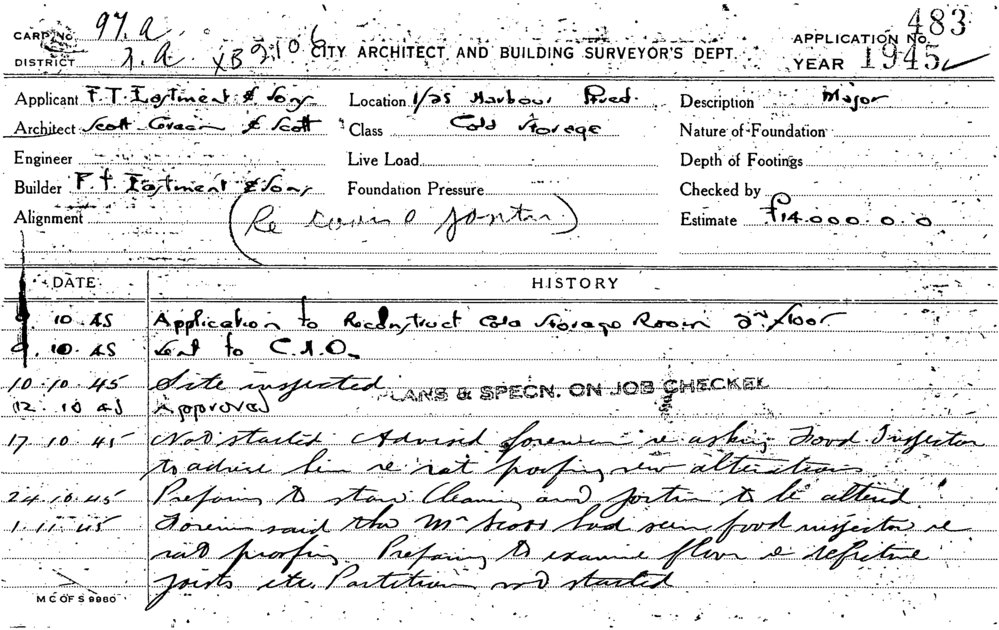 CARD No. 97.A
DISTRICT 1.A. XB2106 CITY ARCHITECT AND BUILDING SURVEYOR'S DEPT
APPLICATION No. 483
YEAR 1945
Applicant F. T. Eastment & Sons Location 1/25 Harbour Street. Description Major
Architect Scott Green & Scott Class Cold Storage Nature of Foundation
Engineer Live Load Depth of Footings
Builder F. T. Eastment & Sons Foundation Pressure Checked by
Alignment (Re ) Estimate £14.000.0.0
DATE HISTORY
9. 10 45 Application to Reconstruct Cold Storage Room 2nd floor
9. 10. 45 Sent to
10. 10. 45 Site inspected PLANS & SPECN. ON JOB CHECKED
12. 10 45 Approved
17. 10. 45 Not started Advised foreman re asking Food Inspector
to advise him re rat proofing new alterations
24. 10. 45 Preparing to start Cleaning and portion to be altered
1. 11. 45 Foreman said that Mr Scott had seen food inspector re
rat proofing Preparing to examine floor & defective
joists etc. Partition not started
M C OF S 9960